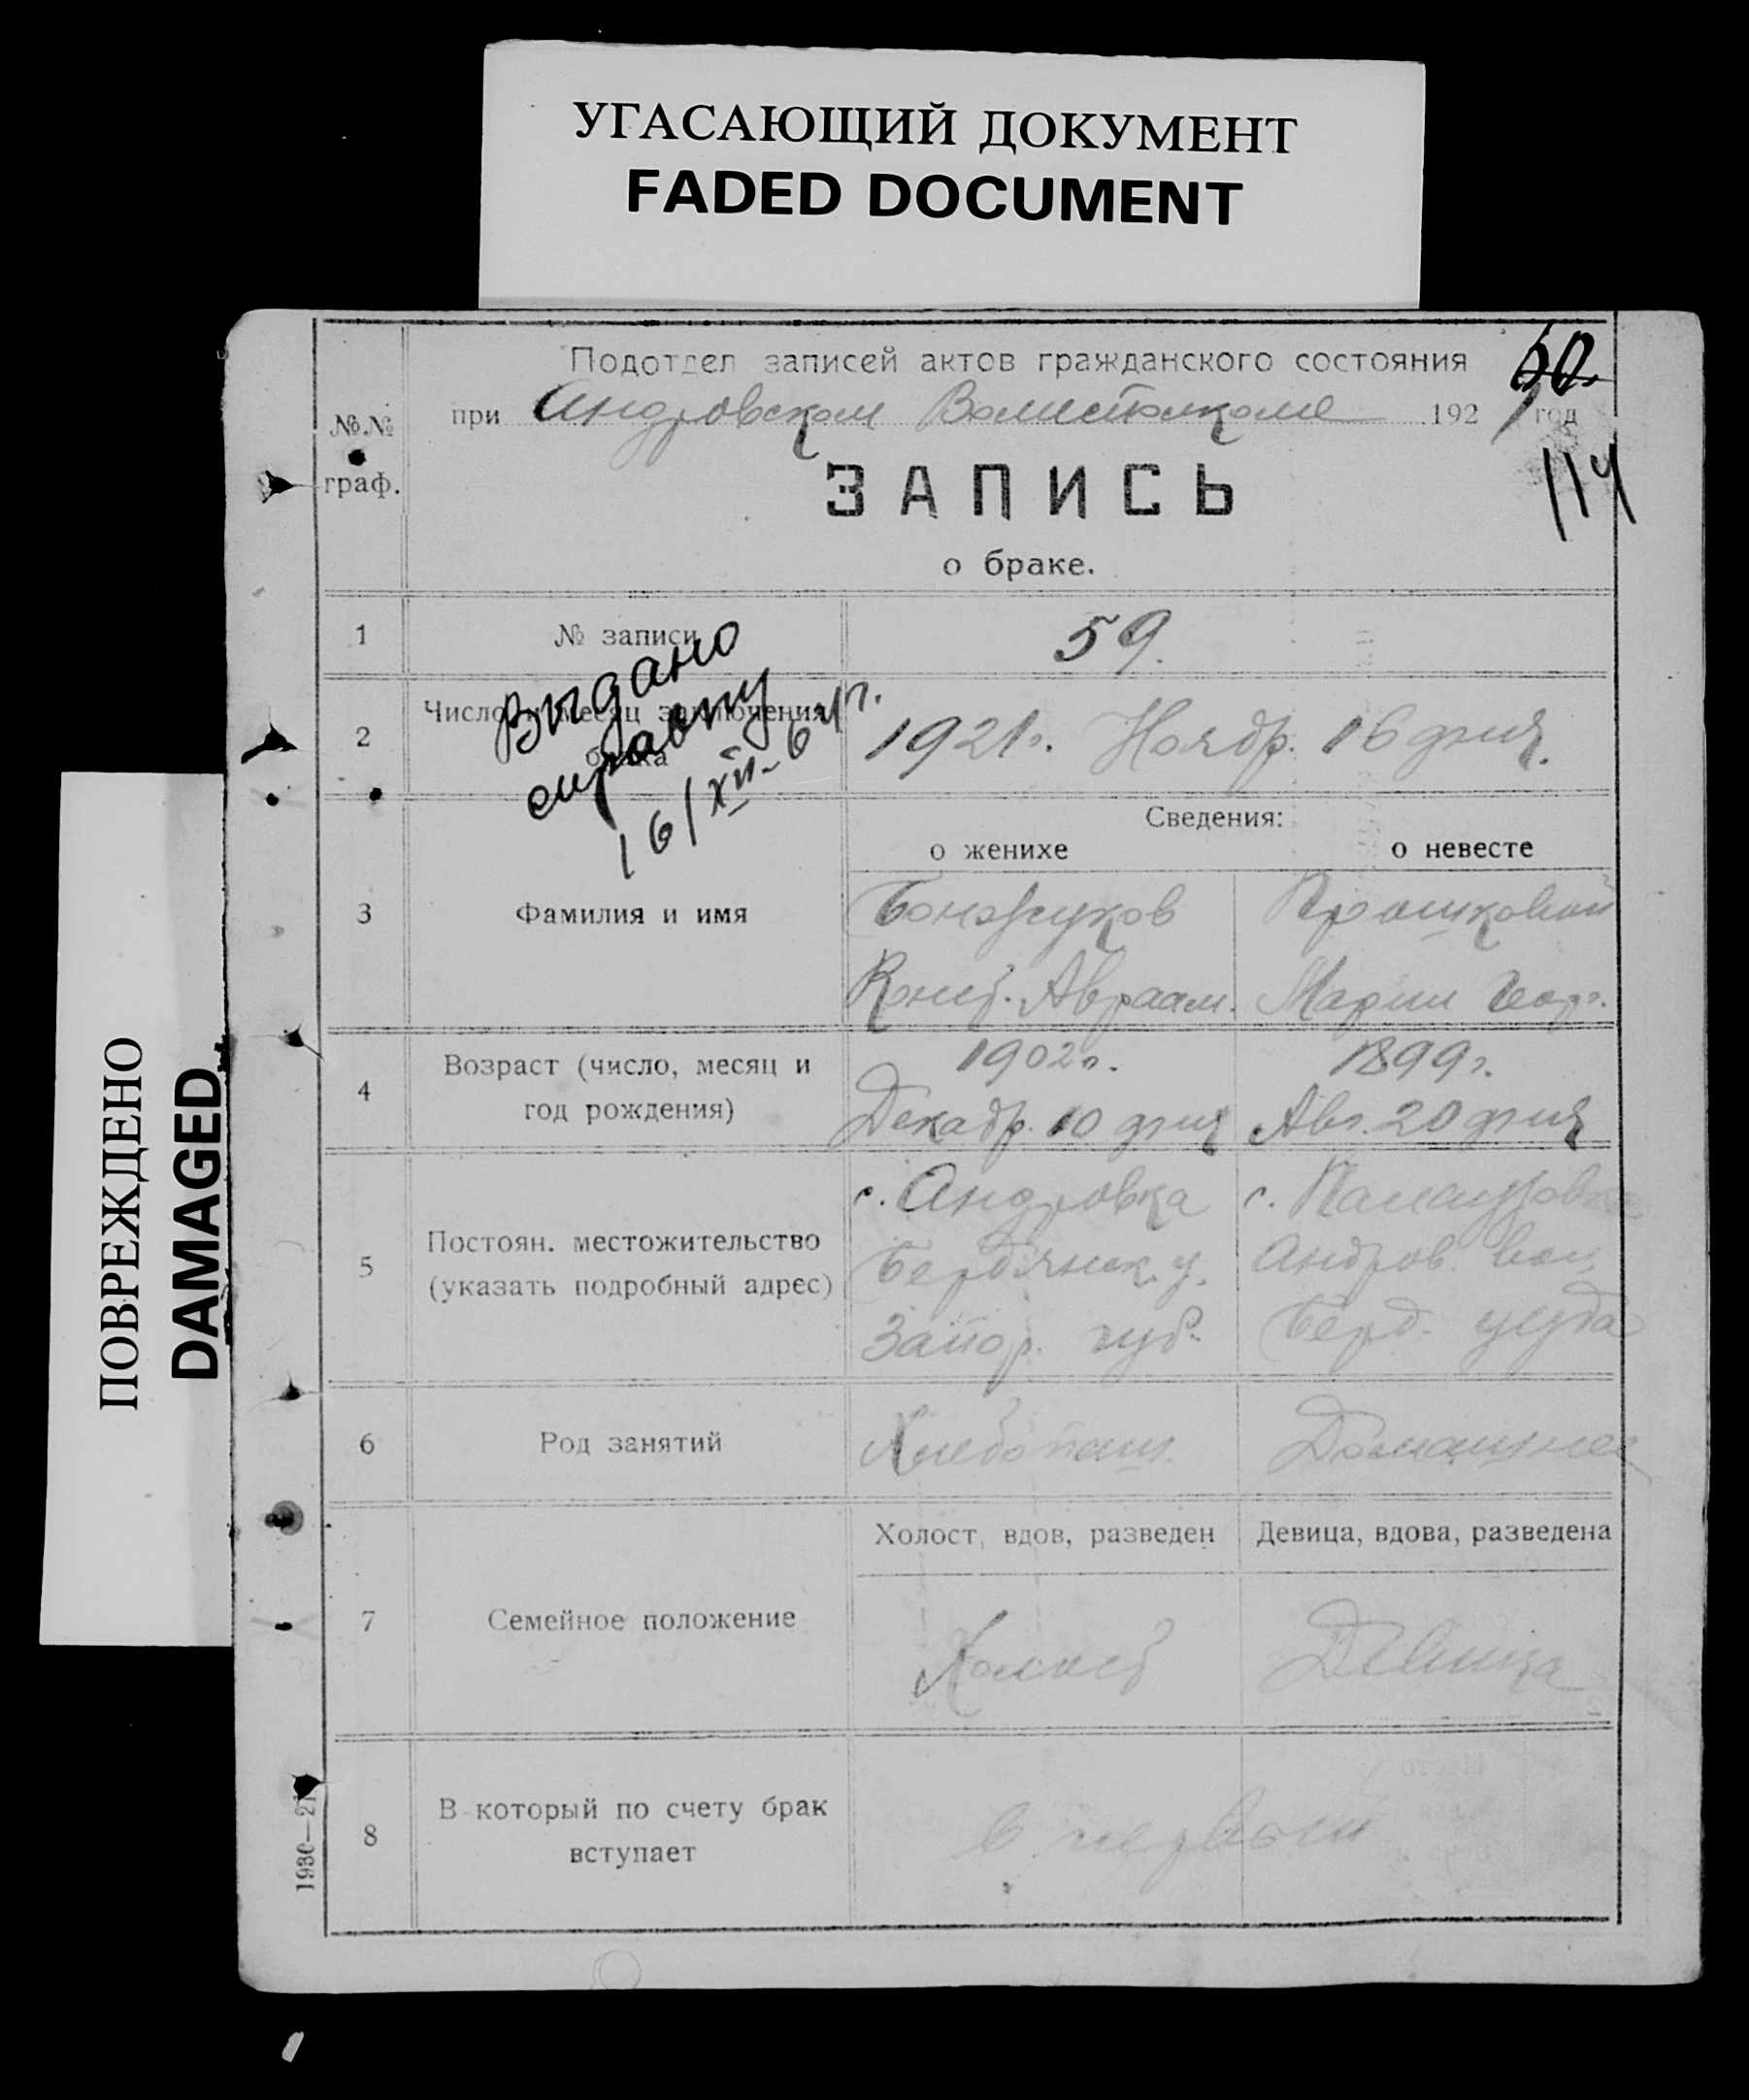 УГАСАЮЩИЙ ДОКУМЕНТ
FADED DOCUMENT
ПОВРЕЖДЕНО
DAMAGED
Подотдел записей актов гражданского состояния
60.
при Андровском Волисполкоме 1921 год
114
№.№
граф.
ЗАПИСЬ
о браке.
1 № записи 59.
Выдано
справку
16/XII-64г.
2 Число и месяц заключения
брака
1921г. Ноябр. 16 дня.
Сведения:
о женихе о невесте
3 Фамилия и имя
Бонжуков
Конст. Авраам. Марии Геор.
4 Возраст (число, месяц и
год рождения)
1902г. 1899г.
Декабр. 10 дня Авг. 20 дня
5 Постоян. местожительство
(указать подробный адрес)
с. Андровка с.
Бердянск. у. Андров. вол.
Запор. губ. Берд. уезда
6 Род занятий
Хлебопаш. Домашнее
7 Семейное положение
Холост, вдов, разведен Девица, вдова, разведена
Холост Девица
8 В который по счету брак
вступает
в первый
1930—21